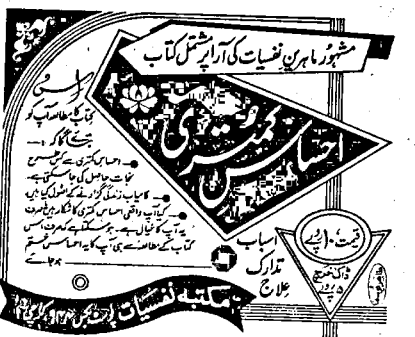 مشہور ماہرین نفسیات کی آرا پر مشتمل کتاب
احساسِ کمتری
اس
کتاب کا مطالعہ آپ کو
بتائے گا کہ :-
احساس کمتری سے کس طرح
نجات حاصل کی جا سکتی ہے۔
کامیاب زندگی گزارنے کے اصول کیا ہیں
کیا آپ واقعی احساس کمتری کا شکار ہیں یا صرف
یہ آپ کا خیال ہے۔ ہو سکتا ہے کہ صرف اس
کتاب کے مطالعہ سے ہی آپ کا یہ احساس ختم
ہو جائے
اسباب
تدارک
علاج
قیمت ۱۰ روپے
ڈاک خرچ
۵ روپے
مکتبہ نفسیات پوسٹ بکس کراچی